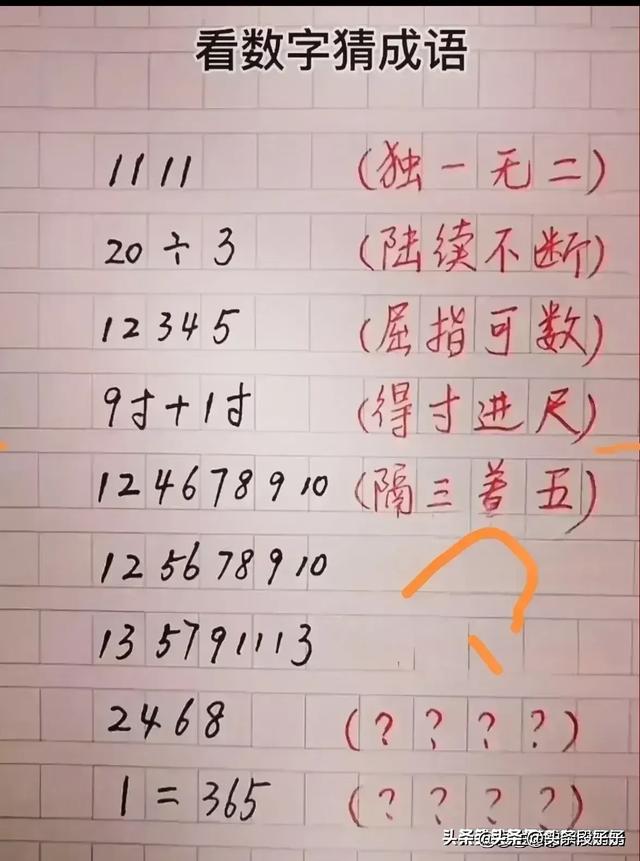 看数字猜成语
1111 (独一无二)
20÷3 (陆续不断)
12345 (屈指可数)
9寸+1寸 (得寸进尺)
124678910 (隔三着五)
125678910
135791113
2468 (? ? ? ?)
1=365 (? ? ? ?)